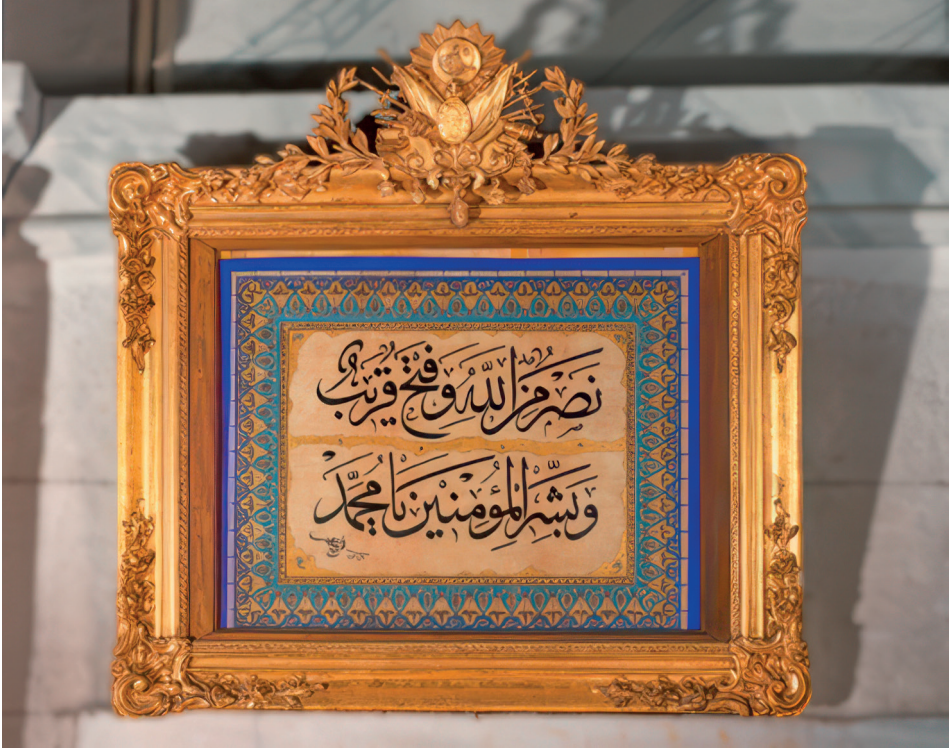 نَصْرٌ مِنَ اللّٰهِ وَفَتْحٌ قَرِيبٌ
وَبَشِّرِ الْمُؤْمِنِينَ يَا مُحَمَّدُ